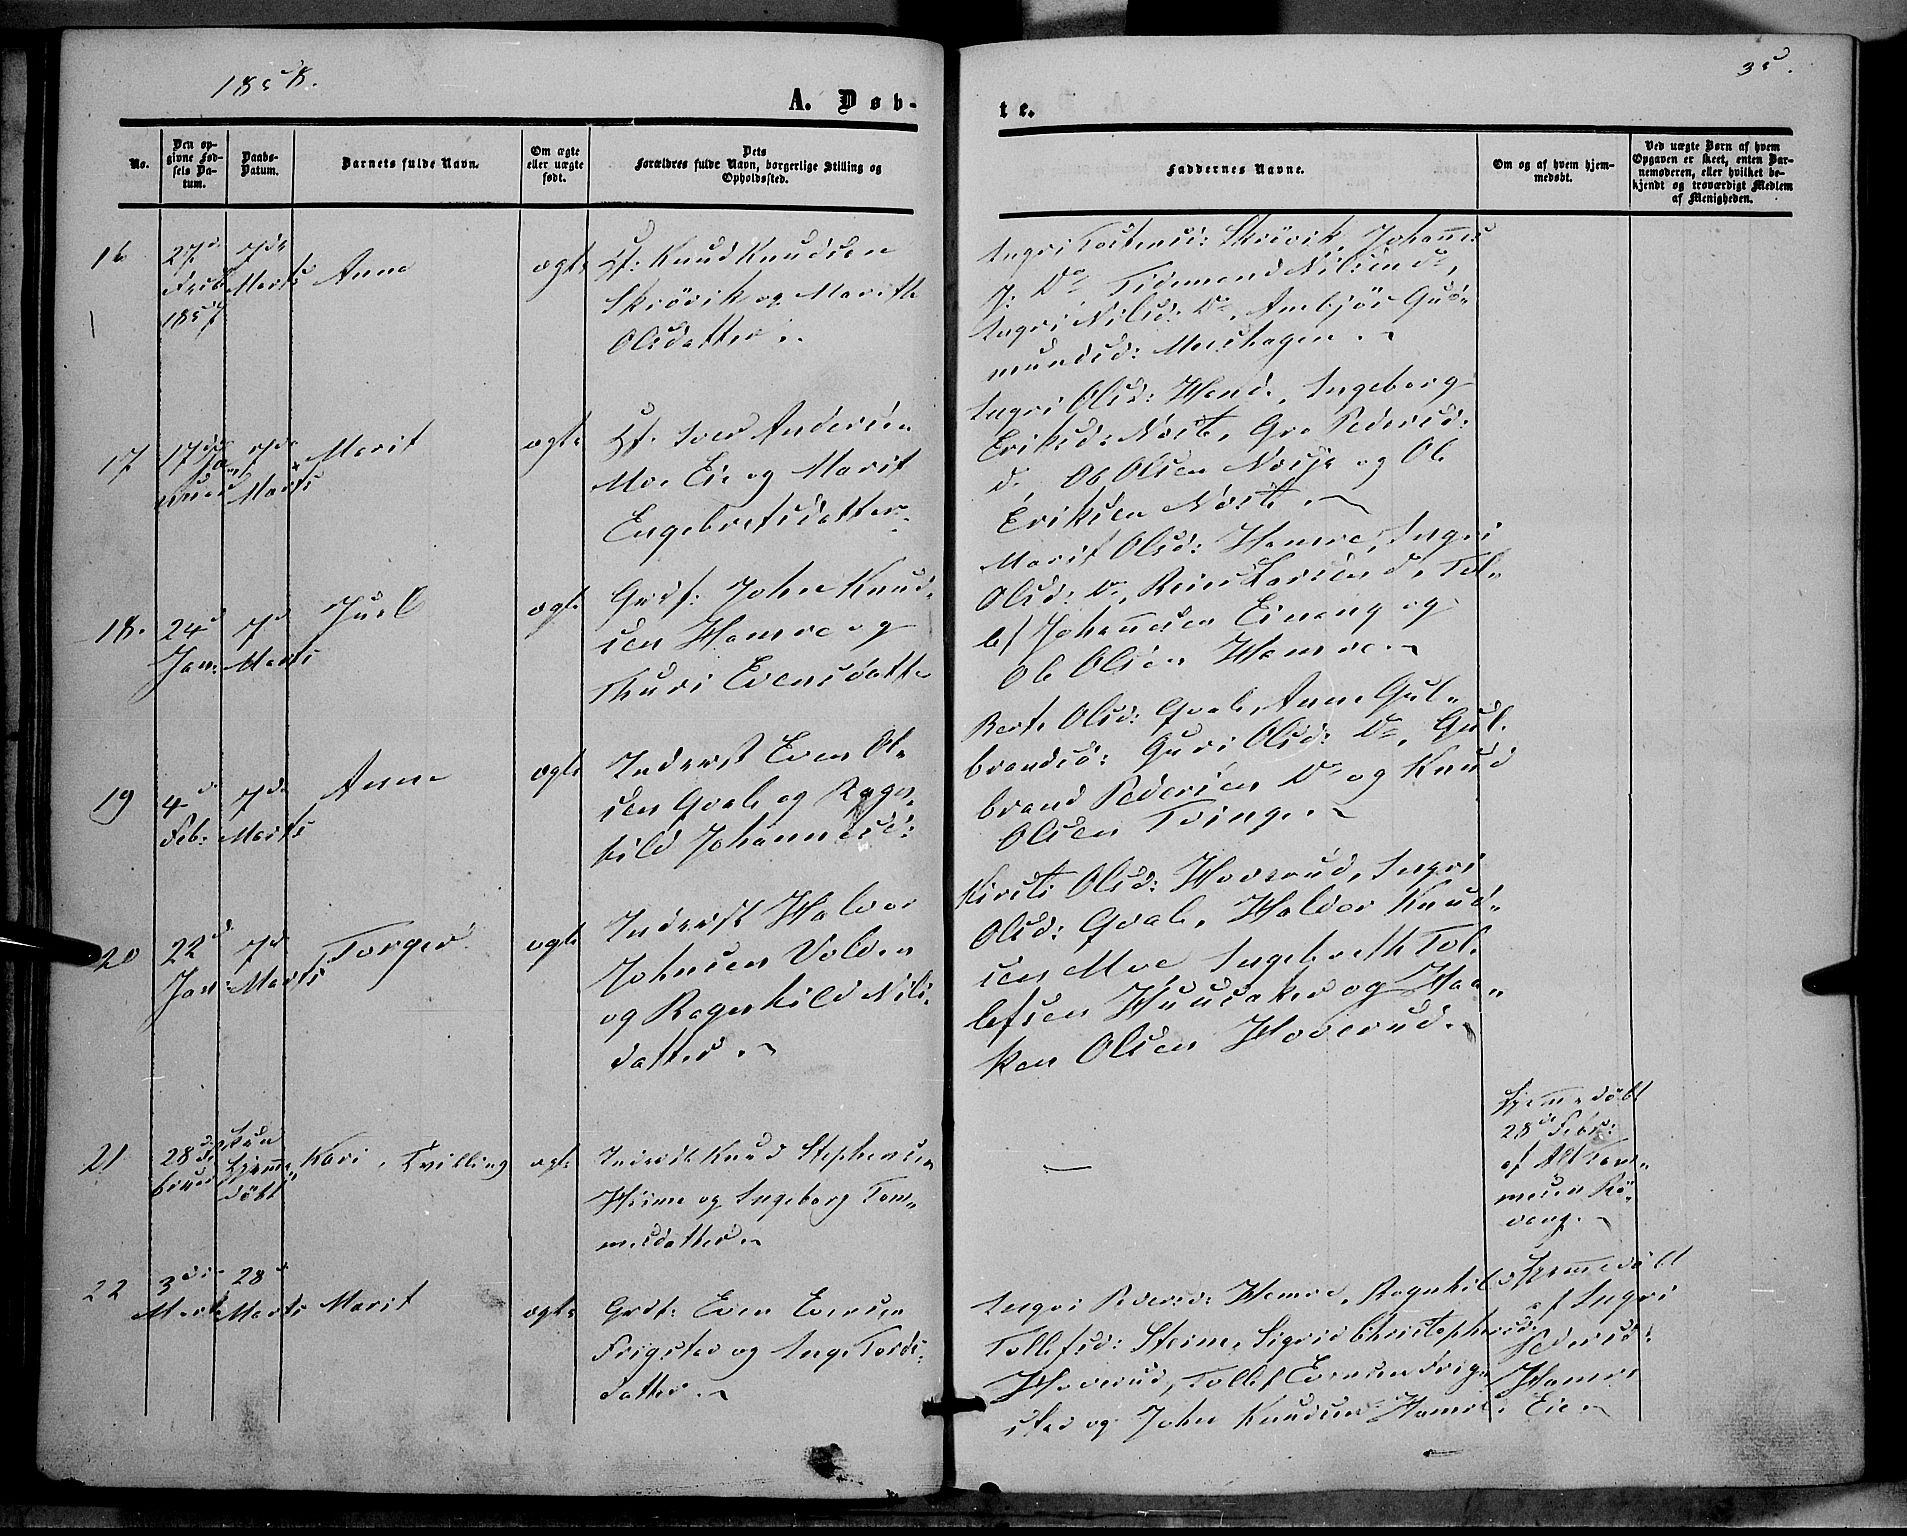 1858.
35.
A. Døb-
te.
No.
Den op-
givne Fød-
sels Da-
tum.
Daabs-
Datum.
Barnets fulde Navn.
Om ægte
eller uægte
født.
Dets
Forældres fulde Navn, borgerlige Stilling og
Opholdssted.
Faddernes Navne.
Om og af hvem hjem-
medøbt.
Ved uægte Børn af hvem
Opgaven er skeet, enten Bar-
nemoderen, eller hvilket be-
kjendt og troværdigt Medlem
af Menigheden.
16
27d
Febr
1857
7de
Marts
Anne
ægte
Knud Knudsen
Skrövik og Marithe
Olsdatter.
Ingri Tostensd: Skrövik, Johannes
J: Do Tidemand Nilsen do,
Ingri Nilsd: Do, Ambjör Gud-
mundsd: Moshagen.
17
17de
Jan
uar
7de
Marts
Marit
ægte
Iver Andersen
Moe Eie og Marit
Engebretsdatter.
Ingri Olsd: Hand, Ingeborg
Eriksd: Nöste, Gro Pedersd:
d. Ole Olsen Nösje og Ole
Eriksen Nöste.
18.
24d
Jan:
7d
Marts
Juel
ægte
Grdf: John Knud-
sen Hamre og
Thuri Evensdatter
Marit Olsd: Hamre, Ingri
Olsd: Do, Reier Larsen d. Tol-
lef Johannesen Einang og
Ole Olsen Hamre.
19
4d
Feb:
7de
Marts
Anne
ægte
Inderst Even Ol-
sen Qvale og Ragn-
hild Johannesd:
Berte Olsd: Qvale, Anne Gul-
brandsd: Guri Olsd: Do, Gul-
brand Pedersen Do og Knud
Olsen Tvinge.
20
22d
Jan:
7d
Marts
Torger
ægte
Inderst Halvor
Johnsen Volden
og Ragnhild Nils-
datter.
Kirsti Olsd: Hoverud, Ingri
Olsd: Qvale, Halvor Knud-
sen Moe Ingebreth Tol-
lefsen Huusaker og Haa-
ken Olsen Hoverud.
21
28de Fe
bruar
Kun
hjemme
döbt
Kari, Tvilling
ægte
Inderst Knud Stephensen
Heime og Ingeborg Tom-
mesdatter.
—
Hjemmedöbt
28d Febr:
af Alf Tom-
mesen Rö-
vang.
22
3die
Marts
28d
Marts
Marit
ægte
Grdf: Even Evensen
Frigstad og Inge Tords-
datter.
Ingri Pedersd: Hamre, Ragnhild
Tollefsd: Steine, Sigrid Christophersd:
Hoverud, Tollef Evensen Frig-
stad og John Knudsen Hamre
Hjemmedöbt
af Ingri
Pedersd:
Hamre
Eie